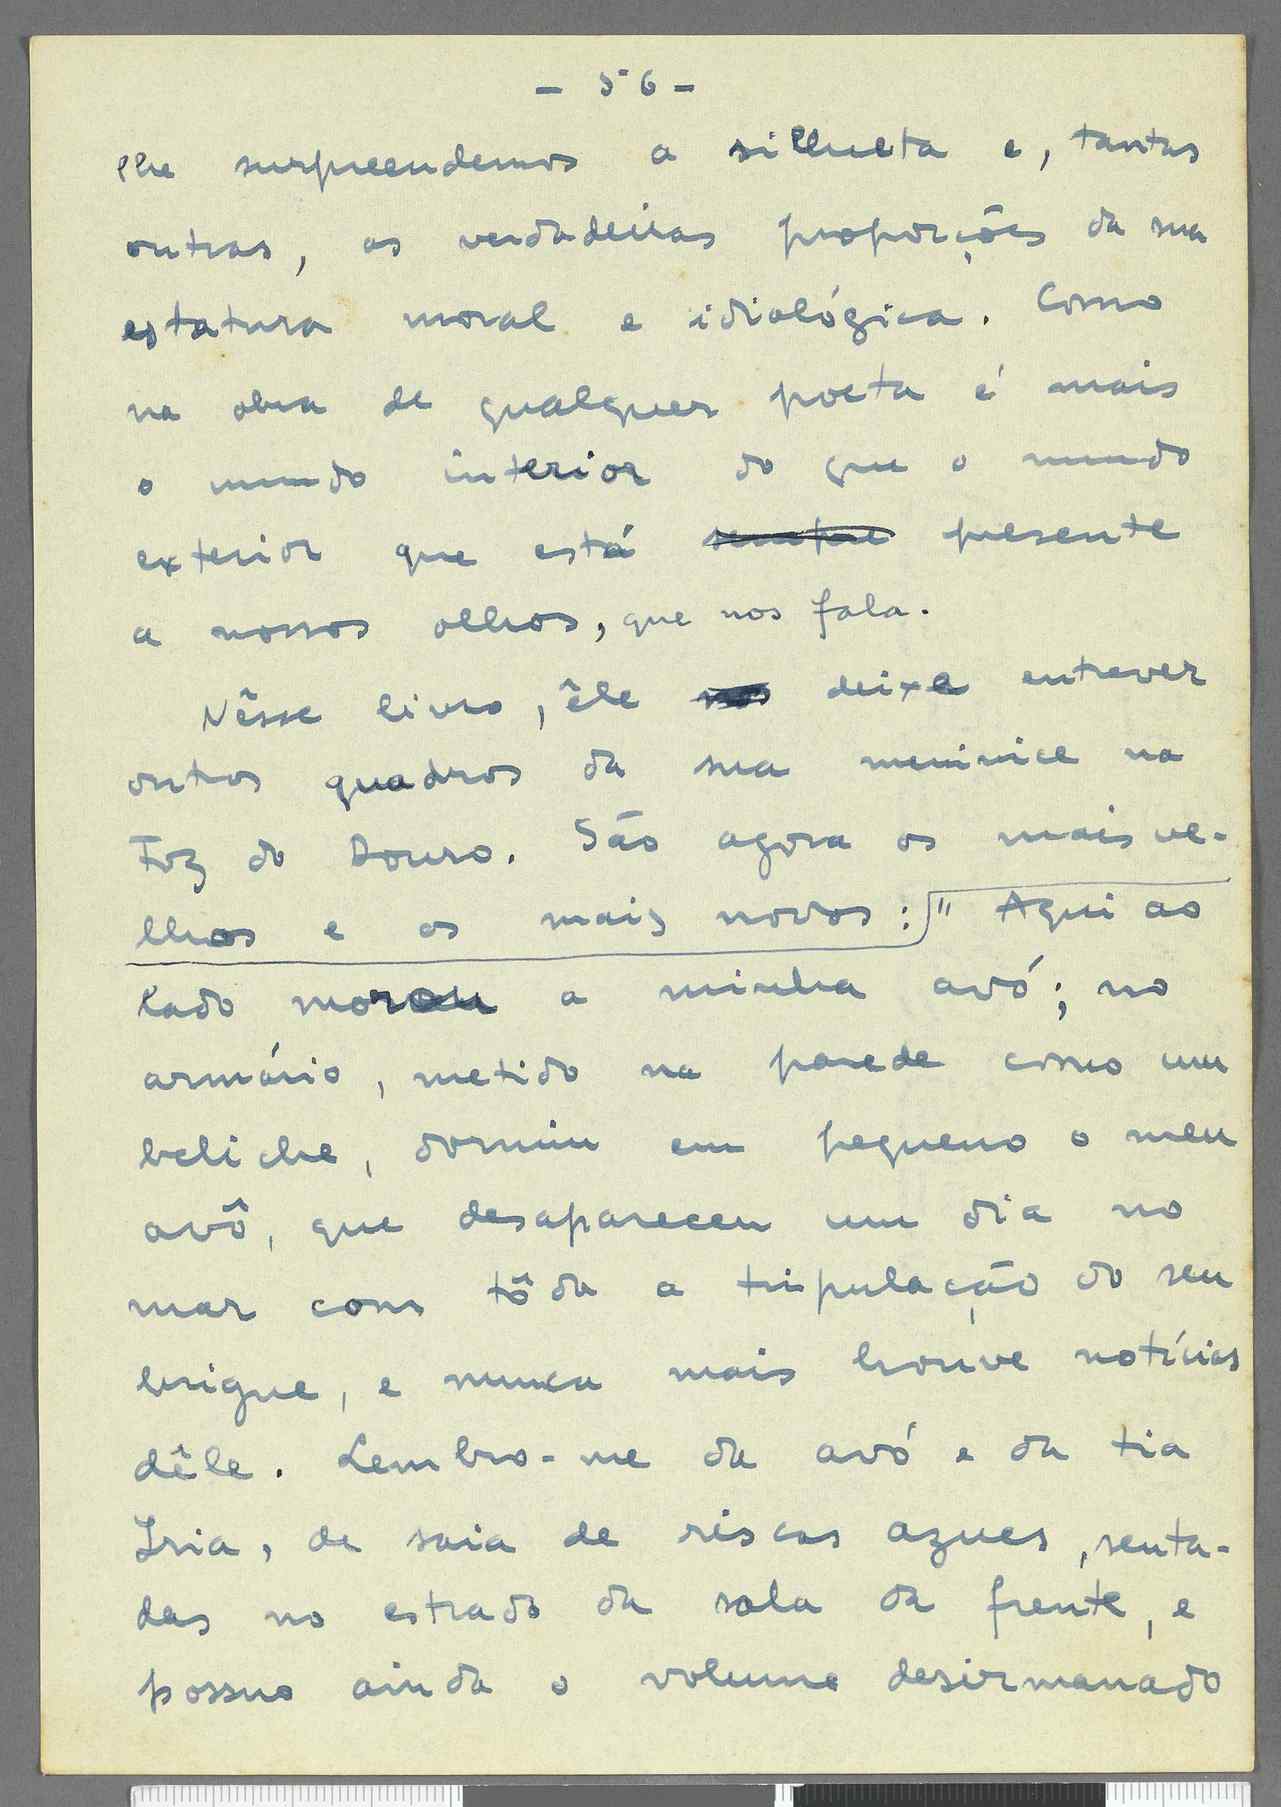 - 56 -
lhe surpreendemos a silhueta e, tantas
outras, as verdadeiras proporções da sua
estatura moral e idiológica. Como
na obra de qualquer poeta é mais
o mundo interior do que o mundo
exterior que está sempre presente
a nossos olhos, que nos fala.
Nêsse livro, êle nos deixa entrever
outros quadros da sua meninice na
Foz do Douro. São agora os mais ve-
lhos e os mais novos: "Aqui ao
lado morou a minha avó; no
armário, metido na parede como um
beliche, dormiu em pequeno o meu
avô, que desapareceu um dia no
mar com tôda a tripulação do seu
brigue, e nunca mais houve notícias
dêle. Lembro-me da avó e da tia
Iria, de saia de riscas azues, senta-
das no estrado da sala da frente, e
possuo ainda o volume desirmanado